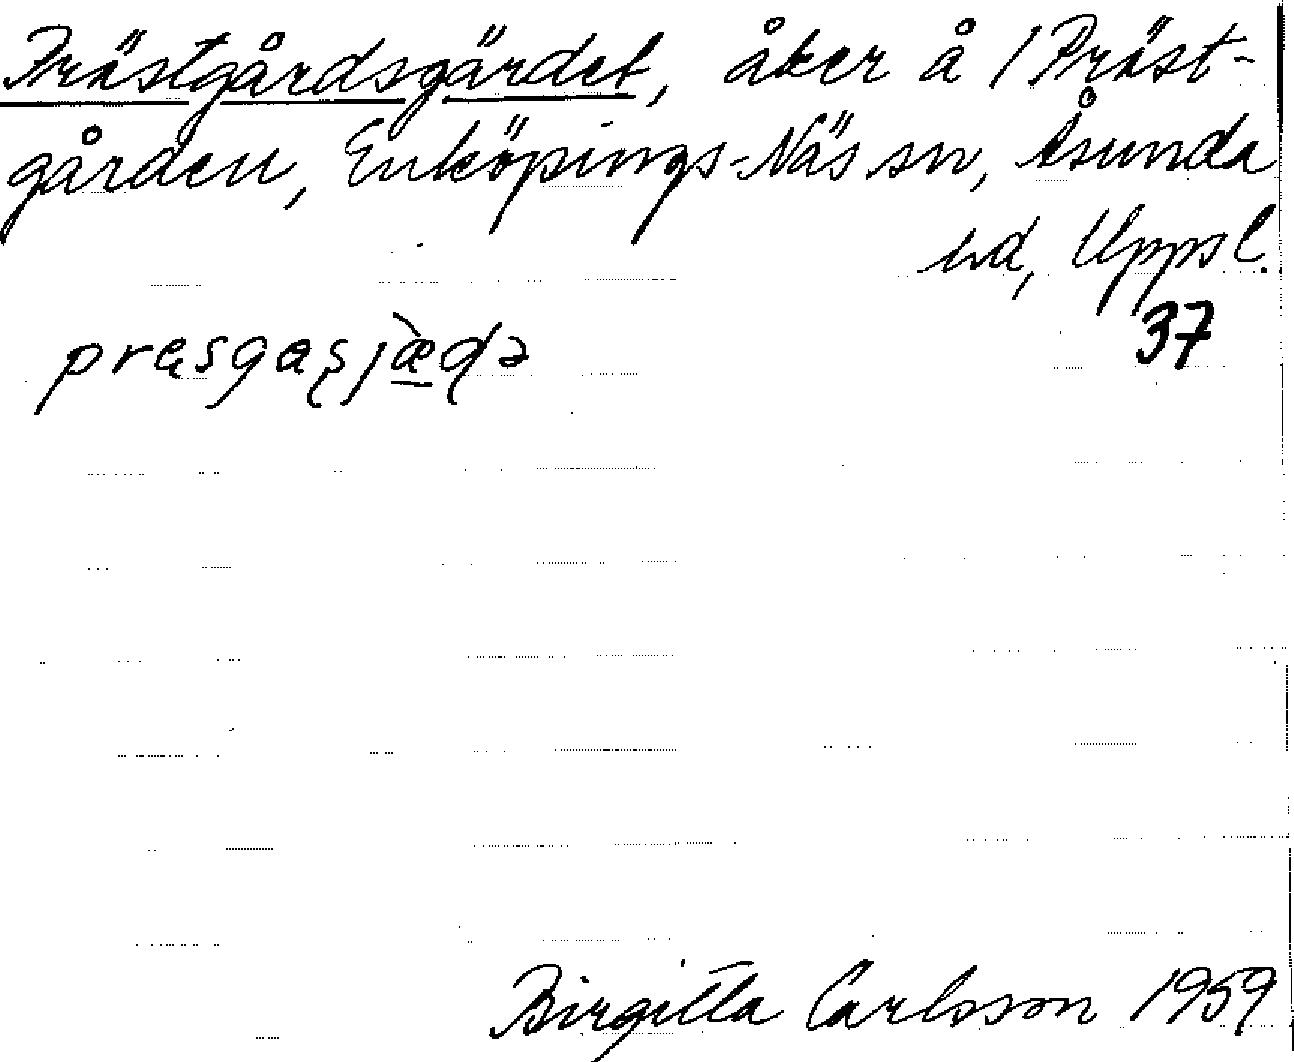 Prästgårdsgärdet, åker å 1 Präst-
gården, Enköpings-Näs sn, Åsunda
hd, Uppsl.
37
Birgitta Carlsson 1959